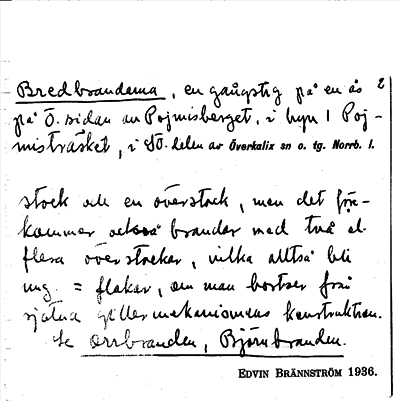 Bredbranderna, en gångstig på en ås 2
på Ö. sidan av Pojmisberget, i byn 1 Poj-
misträsket, i SÖ. delen av Överkalix sn o. tg. Norrb. l.
stock och en överstock, men det före-
kommer också brander med två el.
flera överstockar, vilka alltså bli
ung. = flakar, om man bortser från
själva gillermekanismens konstruktion.
Se orrbranden, Björnbranden.
EDVIN BRÄNNSTRÖM 1936.